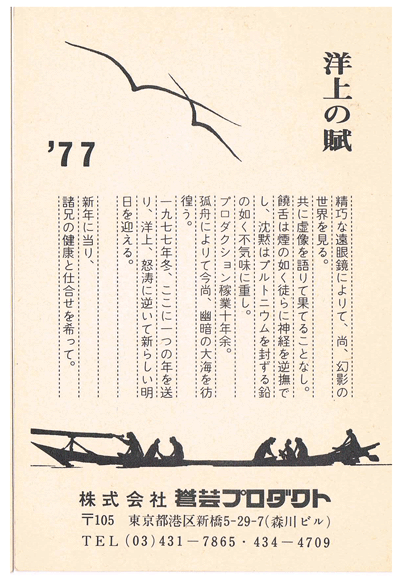 洋上の賦
'77
精巧な遠眼鏡によりて、尚、幻影の
世界を見る。
共に虚像を語りて果てることなし。
饒舌は煙の如く徒らに神経を逆撫で
し、沈黙はプルトニウムを封ずる鉛
の如く不気味に重し。
プロダクション稼業十年余。
孤舟によりて今尚、幽暗の大海を彷
徨う。
一九七七年冬、ここに一つの年を送
り、洋上、怒涛に逆いて新らしい明
日を迎える。
新年に当り、
諸兄の健康と仕合せを希って。
株式会社 誉芸プロダクト
〒105 東京都港区新橋5-29-7(森川ビル)
TEL (03) 431-7865・434-4709